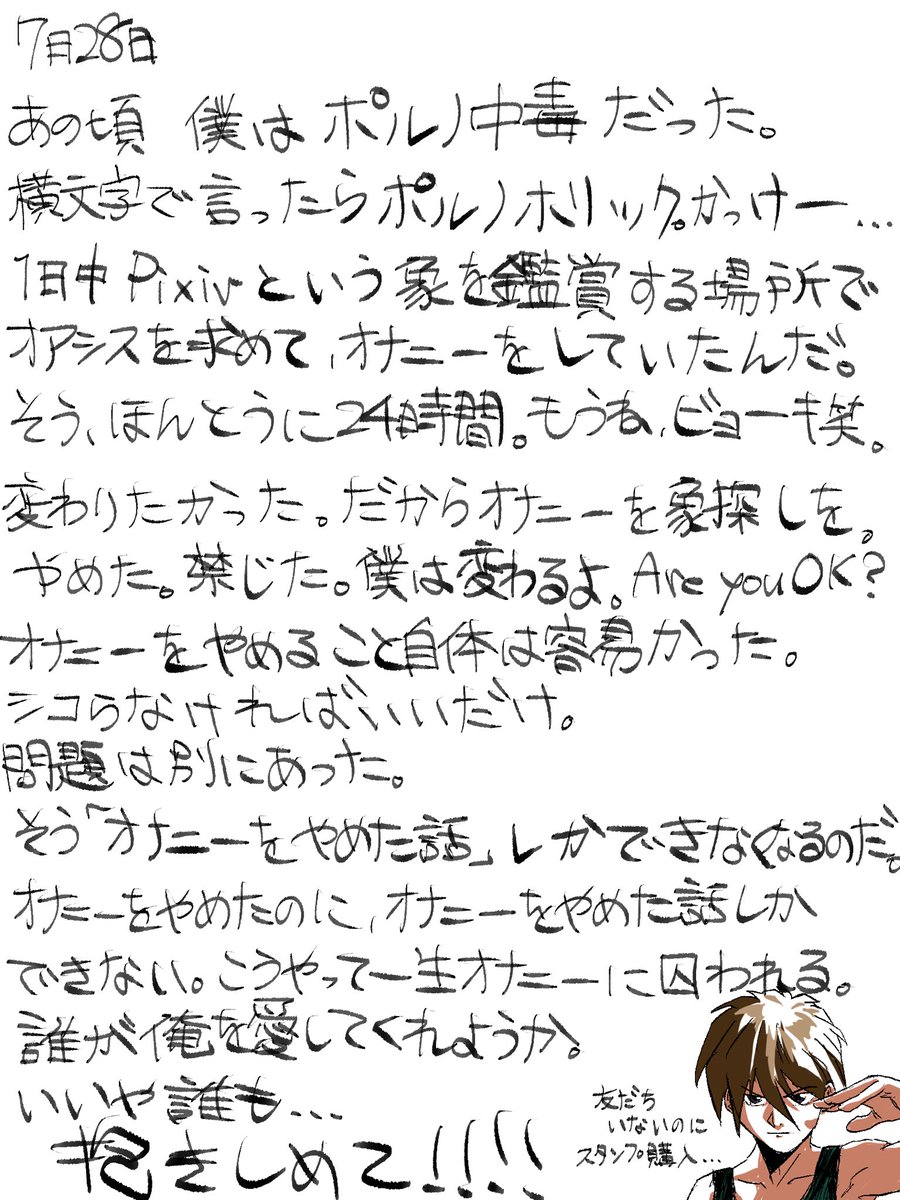 7月28日
あの頃 僕はポルノ中毒だった。
横文字で言ったらポルノホリック。かっけー…
1日中Pixivという象を鑑賞する場所で
オアシスを求めて、オナニーをしていたんだ。
そう、ほんとうに24時間。もうね、ビョーキ笑。
変わりたかった。だからオナニーを象探しを。
やめた。禁じた。僕は変わるよ。Are you OK?
オナニーをやめること自体は容易かった。
シコらなければいいだけ。
問題は別にあった。
そう「オナニーをやめた話」しかできなくなるのだ。
オナニーをやめたのに、オナニーをやめた話しか
できない。こうやって一生オナニーに囚われる。
誰が俺を愛してくれようか。
いいや誰も…
抱きしめて!!!!
友だち
いないのに
スタンプ購入…